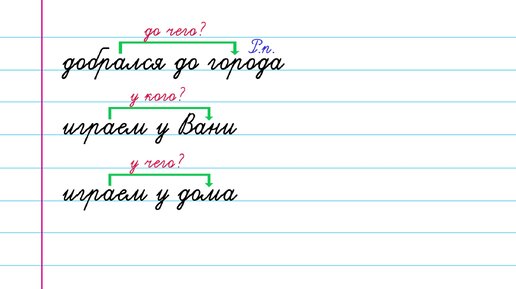 до чего?
Р.п.
добрался до города
у кого?
играем у Вани
у чего?
играем у дома